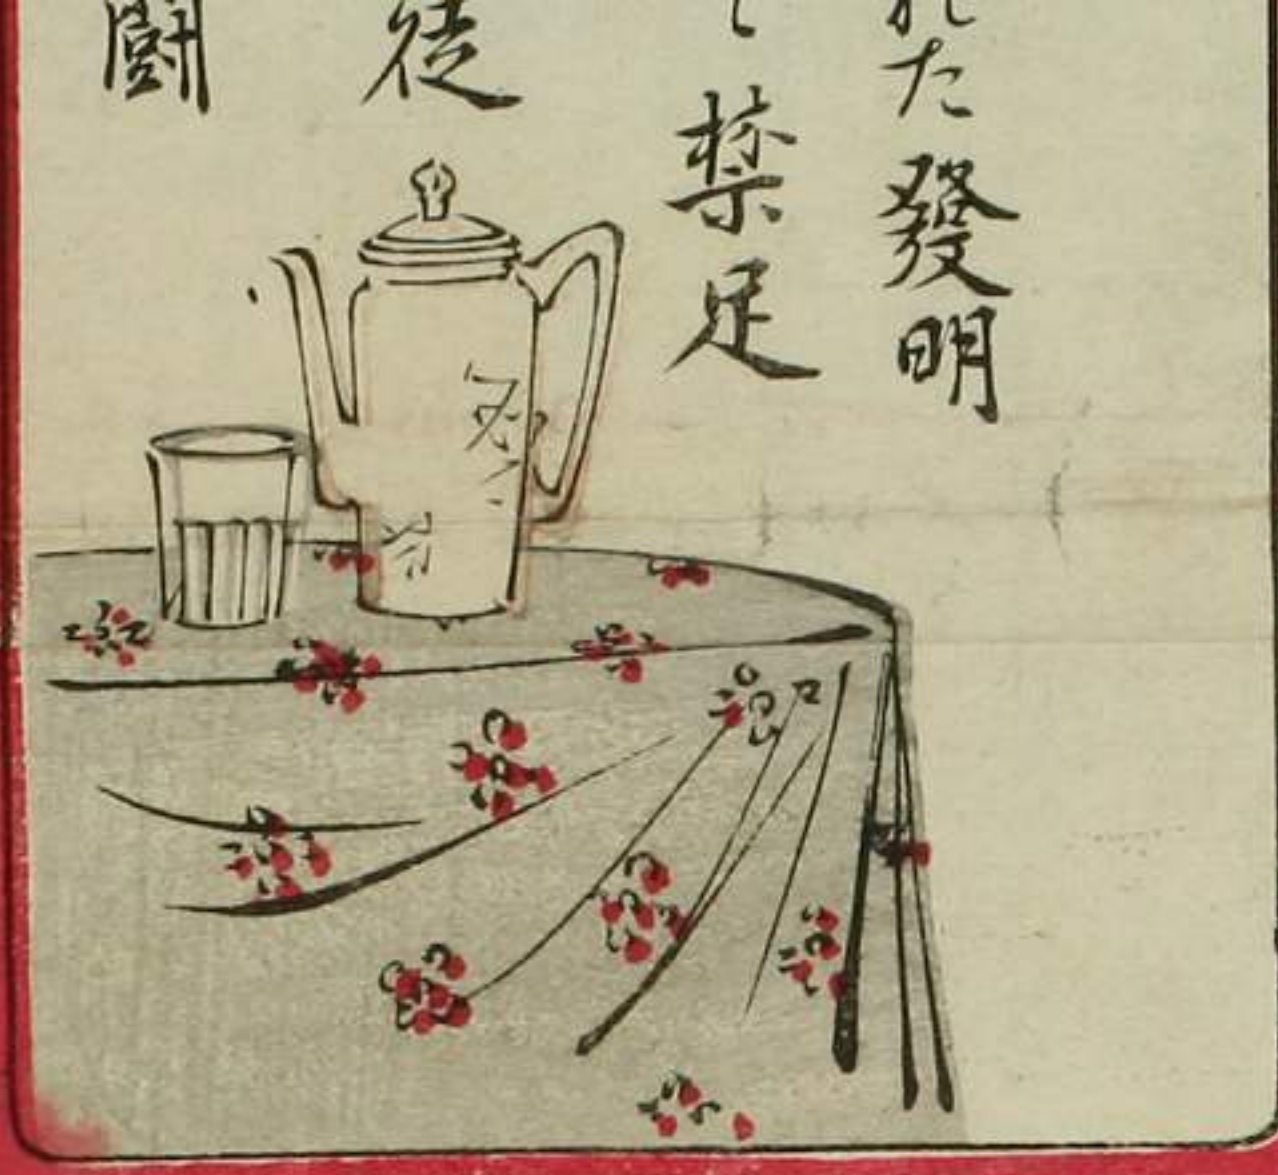 れた發明
禁足
徒
鬪